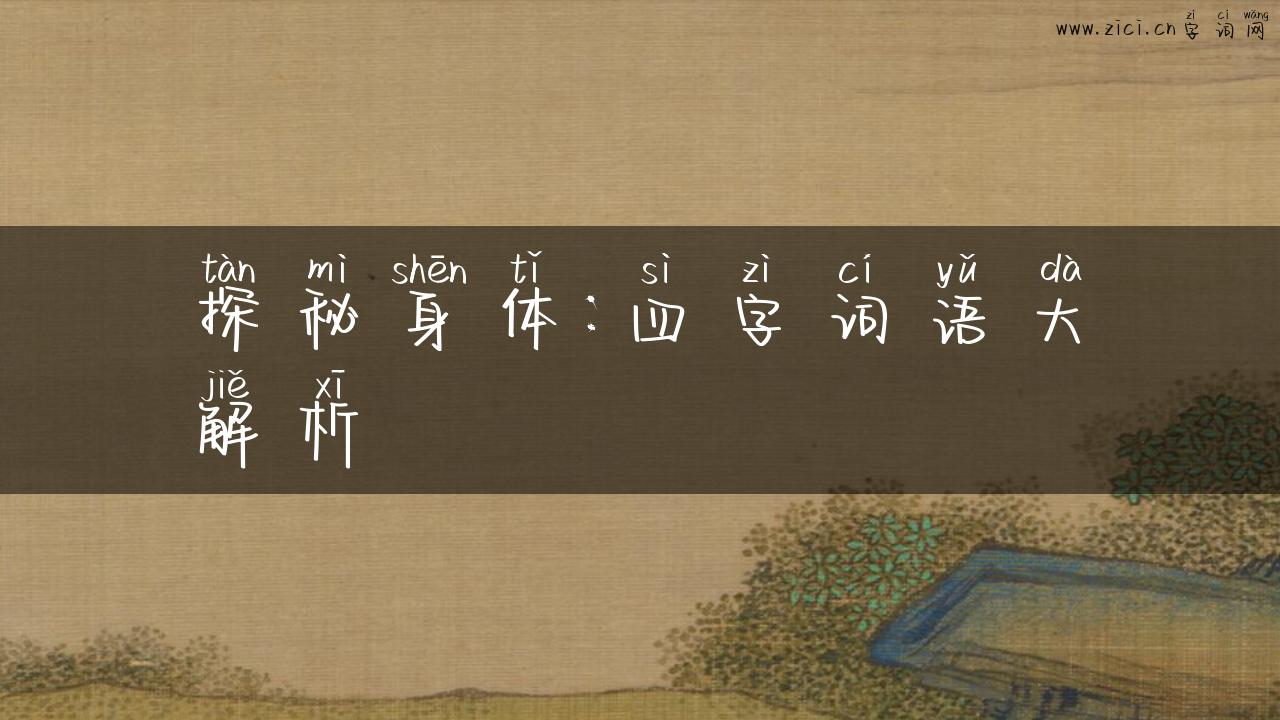 zì cí wǎng
www.zici.cn 字词网
tàn mì shēn tǐ sì zì cí yǔ dà
探秘身体:四字词语大
jiě xī
解析